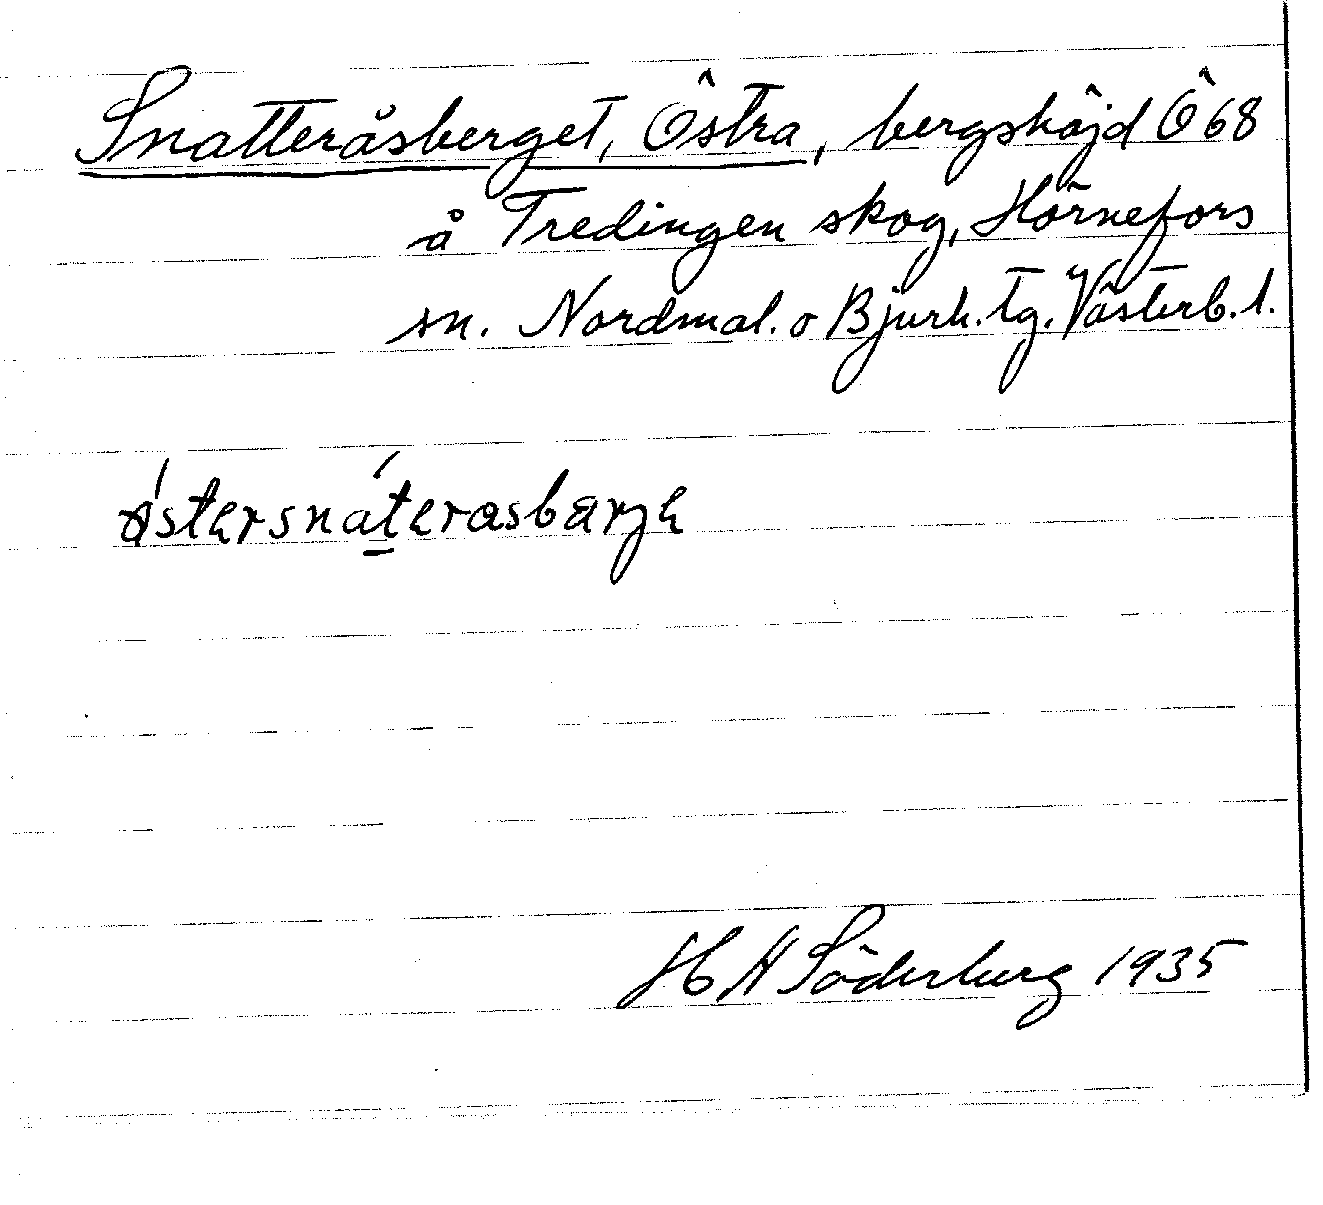 Snatteråsberget, Östra, bergshöjd Ö 68
å Tredingen skog, Hörnefors
sn. Nordmal. o Bjurh. tg. Västerb. l.
östersnáterasbärje
H A Söderberg 1935